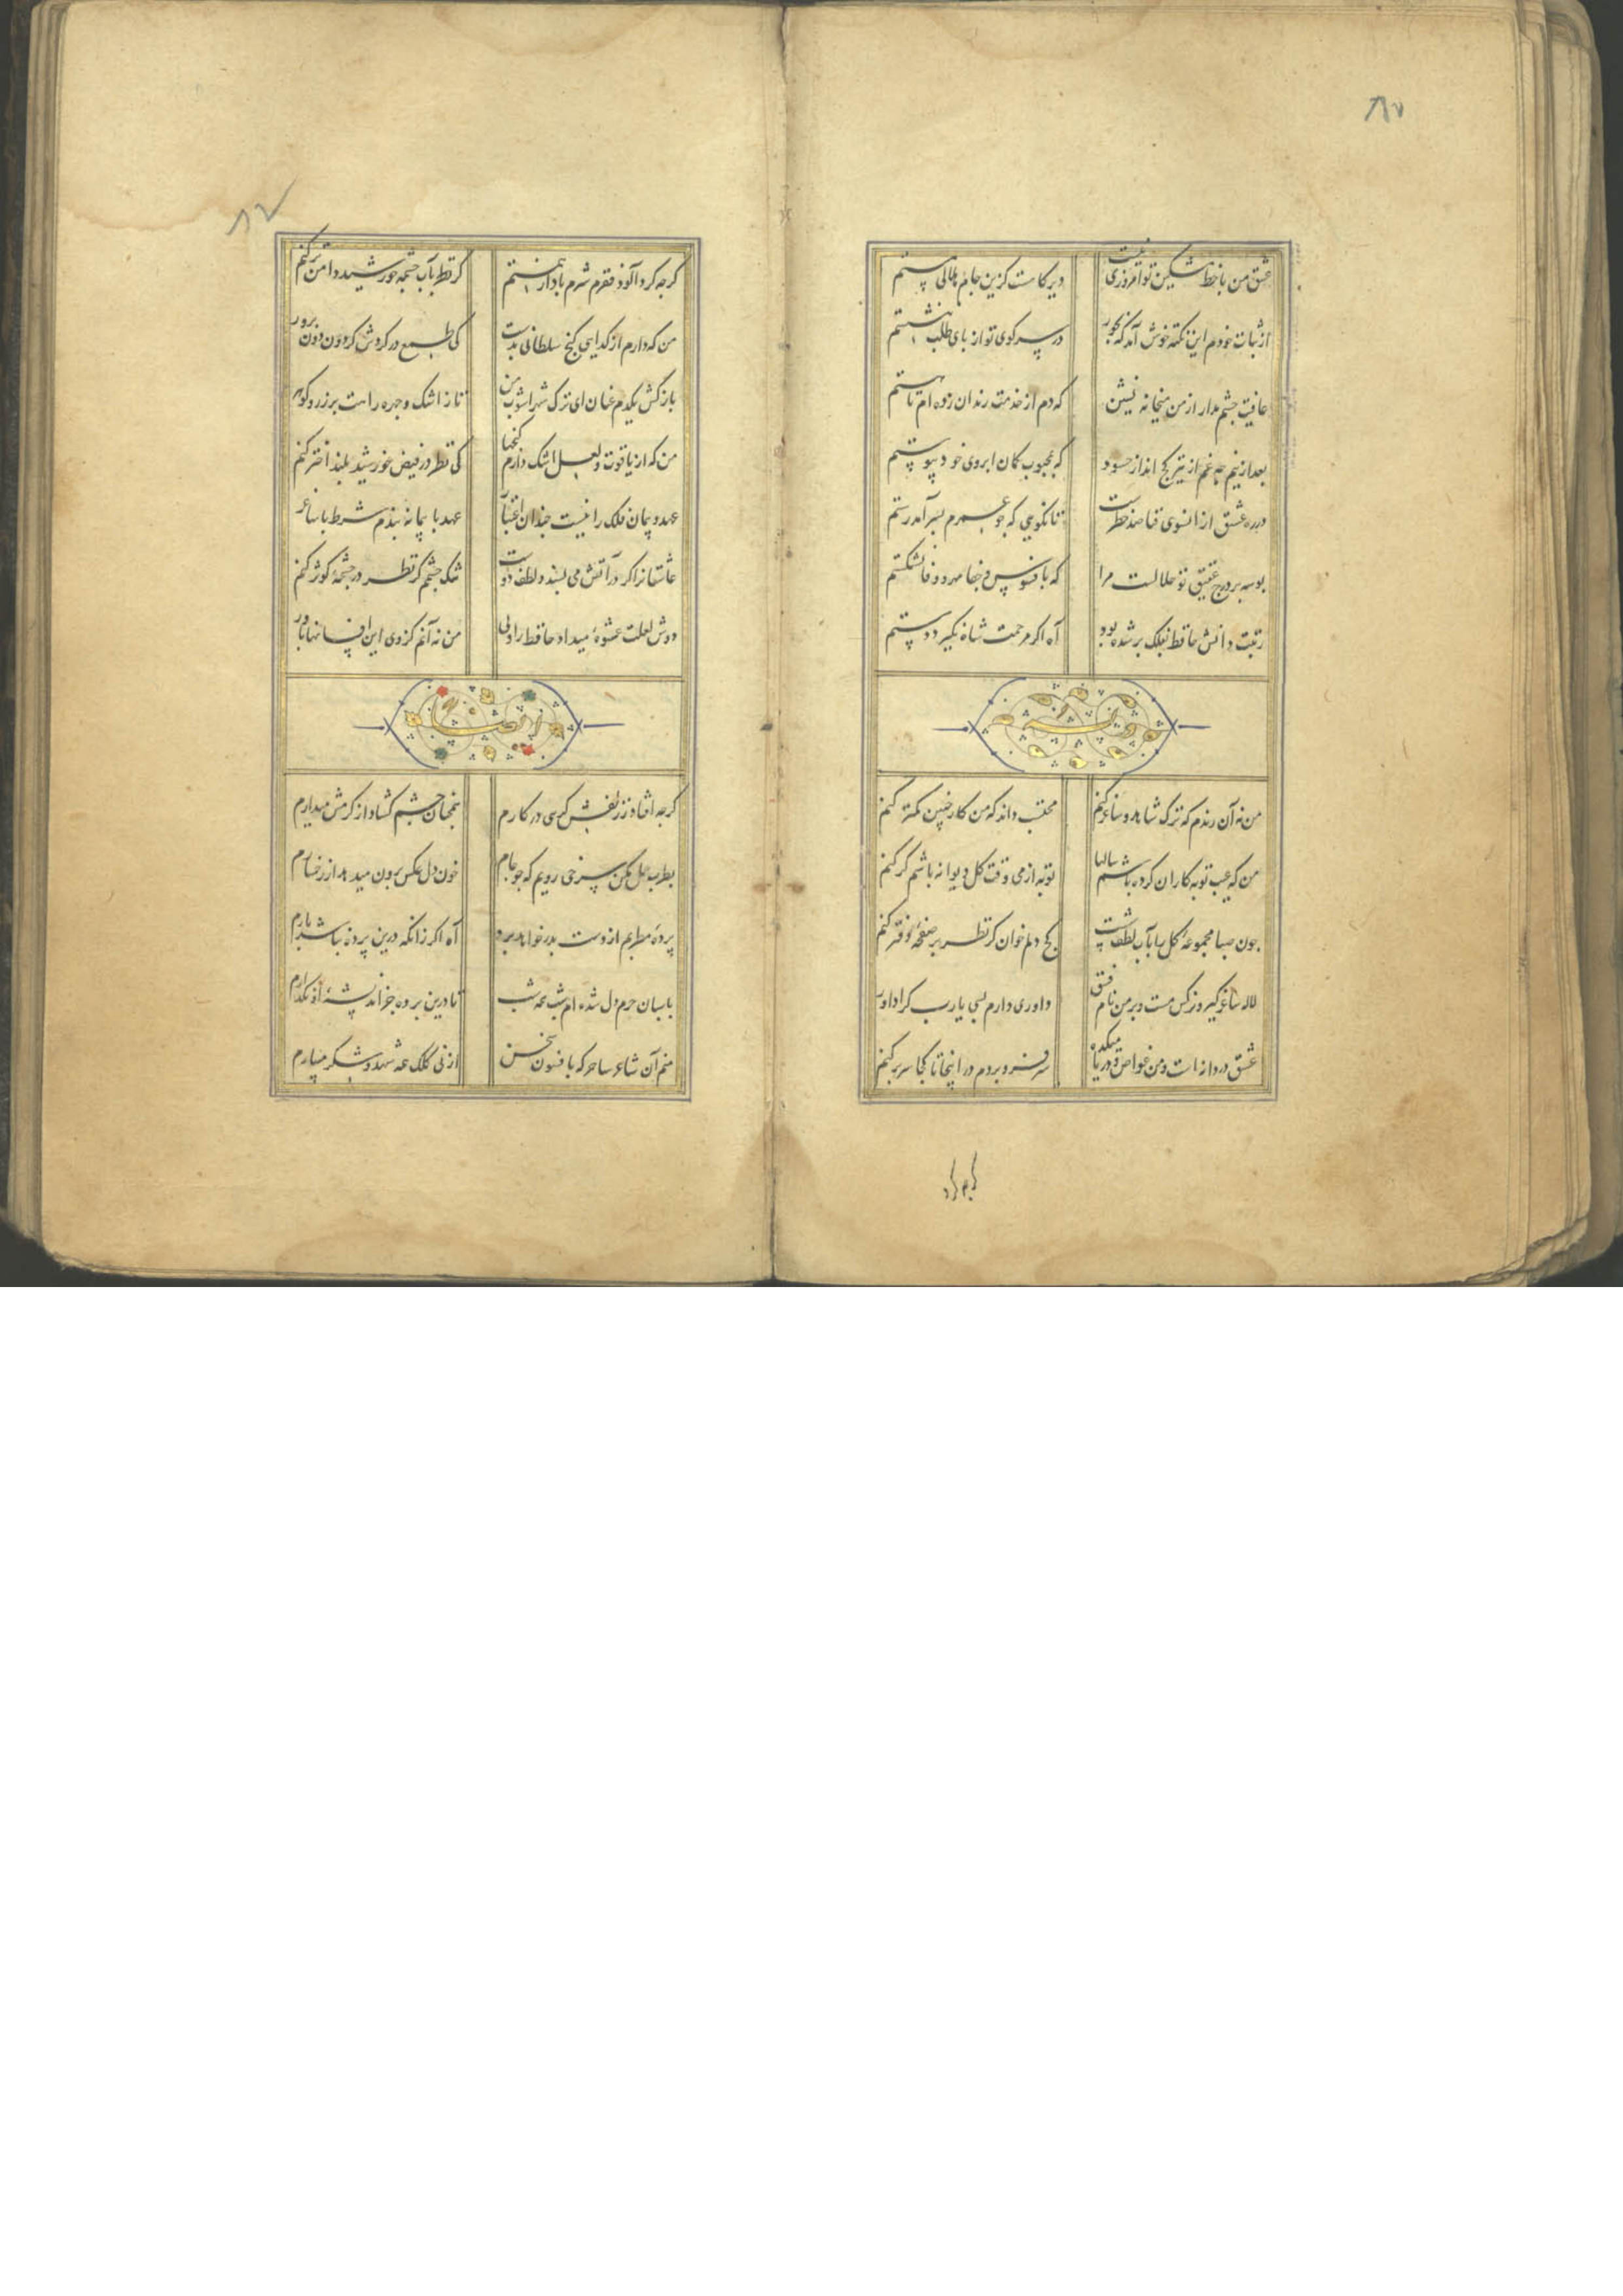 ۸۷
عشق من با خط مشکین تو امروزی نیست
دیرکاست کزین جام هلالی مستم
از ثبات خودم این نکته خوش آمد که بجور
در سر کوی تو از پای طلب ننشستم
عافیت چشم مدار از من میخانه نشین
که دم از خدمت رندان زده ام تا هستم
بعد ازینم چه غم از تیر کج انداز حسود
که بمحبوب کمان ابروی خود پیوستم
در ره عشق از انسوی فنا صد خطرست
تا نکویی که چو عمرم بسر آمد رستم
بوسه بر درج عقیق تو حلالست مرا
که بافسوس و جفا مهر و وفا نشکستم
رتبت دانش حافظ بفلک بر شده بود
آه اکر مرحمت شاه نکیرد دستم
وله
من نه آن رندم که ترک شاهد و ساغر کنم
محتسب داند که من کار چنین کمتر کنم
من که عیب توبه کاران کرده باشم سالها
توبه از می وقت کل دیوانه باشم کر کنم
چون صبا مجموعه کل را بآب لطف شست
کج دلم خوان کر نظر بر صفحه دفتر کنم
لاله ساغر کیر و نرکس مست و بر من نام فسق
داوری دارم بسی یارب کرا داور کنم
عشق دردانه است و من غواص و دریا میکده
سر فرو بردم در اینجا تا کجا سر بر کنم
کرچه
۸۷
کرچه کرد آلود فقرم شرم باد از همتم
کر قطر بآب چشمه خورشید دامن تر کنم
من که دارم از کدایی کنج سلطانی بدست
کی طمع در کردش کردون دون پرور کنم
باز کش یکدم عنان ای ترک شهراشوب من
تا ز اشک و چهره راهت پر زر و کوهر کنم
من که از یاقوت و لعل اشک دارم کنجها
کی نظر در فیض خورشید بلند اختر کنم
عهد و پیمان فلک را نیست چندان اعتبار
عهد با پیمانه بندم شرط با ساغر
عاشقانرا کر در آتش می پسندد لطف دوست
تنک چشمم کر نظر در چشمه کوثر کنم
دوش لعلت عشوه میداد حافظ را ولی
من نه آنم کز وی این افسانها باور
ایضا
کرچه افتاد ز زلفش کرهی در کارم
همچنان چشم کشاد از کرمش میدارم
بطرب حمل مکن سرخی رویم که چو جام
خون دل عکس برون میدهد از رخسارم
پرده مطربم از دست بدر خواهد برد
آه اکر زانکه درین پرده نباشد بارم
پاسبان حرم دل شده ام شب همه شب
تا درین پرده جز اندیشه او نکذارم
منم آن شاعر ساحر که بافسون سخن
از نی کلک همه شهد و شکر میبارم